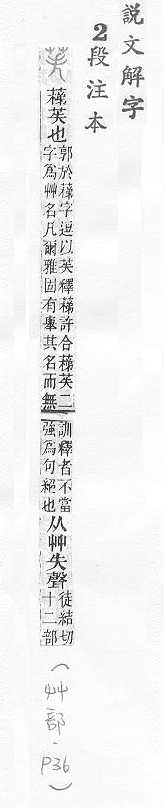 説文解字
2段注本
苵 蕛苵也 郭於蕛字逗以苵釋蕛許合蕛苵二字爲艸名凡爾雅固有舉其名而無訓釋者不當強爲句絕也 从艸失聲 徒結切十二部 (艸部.P36)